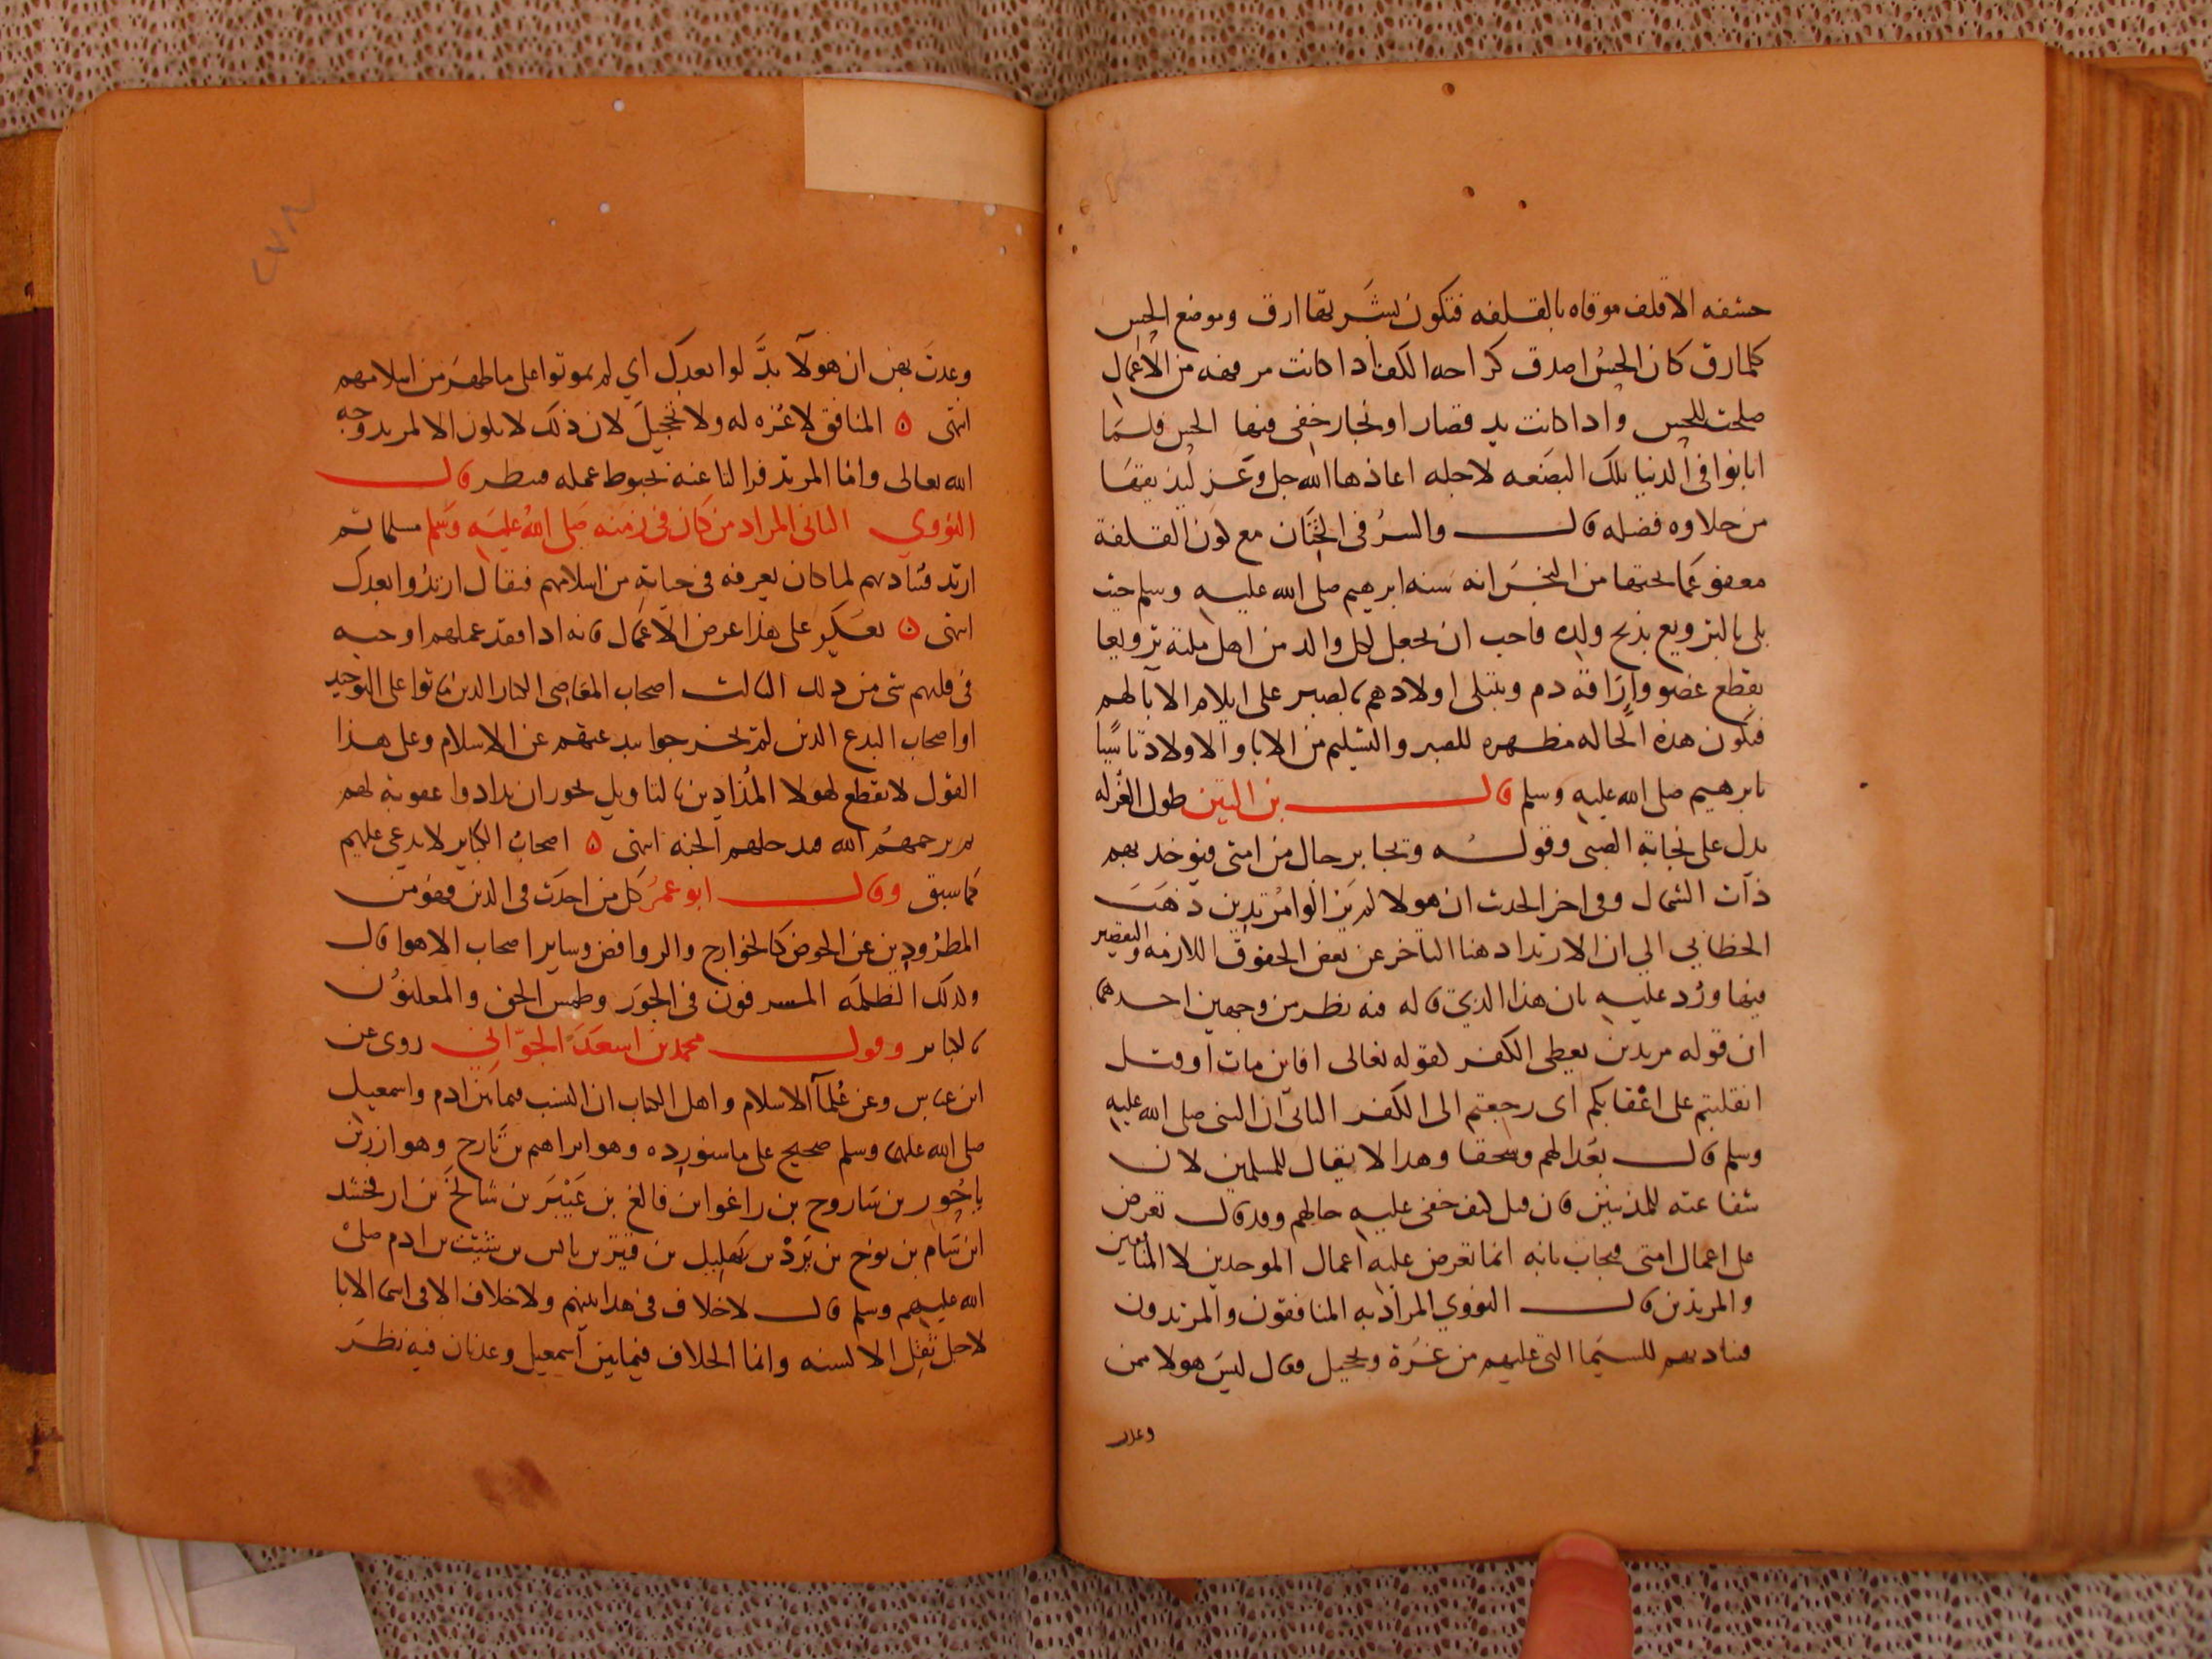 حشفه الاقلف موقاه بالقلفه فتكون بشرتها ارق وموضع الحس
كلما رق كان الحس اصدق كراحه الكف اذا كانت مرفهه من الاعمال
صلحت للحس واذا كانت يد قصار او نجار خفى فيها الحس فلما
ابانوا فى الدنيا تلك البضعه لاجله اعاذها الله جل وعز ليذيقها
من حلاوه فضله قال والسر فى الختان مع كون القلفة
معفو عما تحتها من النجس انه سنه ابرهيم صلى الله عليه وسلم حيث
بلى بالترويع بذبح ولده فاحب ان يجعل لكل والد من اهل ملته ترويعا
بقطع عضو واراقة دم ويبتلى اولادهم بالصبر على ايلام الابا لهم
فتكون هذه الحاله مظهره للصبر والتسليم من الابا والاولاد تاسيا
بابرهيم صلى الله عليه وسلم قال بن التين طول الغرله
يدل على نجابة الصبى وقوله وتجا برجال من امتى فيوخذ بهم
ذات الشمال وفى اخر الحدث ان هولا لم يزالوا مرتدين ذهب
الخطابي الي ان الارتداد هنا التاخر عن بعض الحقوق اللازمه والتقصير
فيها ورد عليه بان هذا الذي قاله فيه نظر من وجهين احدهما
ان قوله مرتدين يعطى الكفر لقوله تعالى افاين مات او قتل
انقلبتم على اعقابكم اى رجعتم الى الكفر الثانى ان النبى صلى الله عليه
وسلم قال بعدا لهم وسحقا وهذا لا يقال للمسلمين لان
شفاعته للمذنبين فان قيل كيف خفى عليه حالهم وقد قال تعرض
على اعمال امتى فيجاب بانه انما تعرض عليه اعمال الموحدين لا المنافقين
والمرتدين قال النووي المراد به المنافقون والمرتدون
فيناديهم للسيما التى عليهم من غرة وتحجيل فقال ليس هولا ممن
وعدت
وعدت بهن ان هولآ بدلوا بعدك اي لم يموتوا على ما ظهر من اسلامهم
انتهى ه المنافق لا غره له ولا تحجيل لان ذلك لا يكون الا لمريد وجه
الله تعالى واما المرتد فزالتا عنه بحبوط عمله فينظر قال
النووي الثانى المراد من كان فى زمنه صلى الله عليه وسلم مسلما ثم
ارتد فناداهم لما كان يعرفه فى حياته من اسلامهم فيقال ارتدوا بعدك
انتهى ه يعكر على هذا عرض الاعمال فانه اذا فقد عملهم اوحيه
فى قلبهم شى من ذلك الثالث اصحاب المعاصى الكبار الذين ماتوا على التوحيد
او اصحاب البدع الذين لم تخرجوا ببدعتهم عن الاسلام وعلى هذا
القول لا يقطع لهولا المذادين بالنار ويل يجوز ان يذادوا عقوبة لهم
ثم يرحمهم الله فيدخلهم الجنه انتهى ه اصحاب الكباير لا يدعى عليهم
كما سبق وقال ابو عمر كل من احدث فى الدين فهو من
المطرودين عن الحوض كالخوارج والروافض وساير اصحاب الاهوا قال
وكذلك الظلمه المسرفون فى الجور وطمس الحق والمعلنون
بالكباير وقول محمد بن اسعد الجواني روى عن
ابن عباس وعن علمآ الاسلام واهل الكتاب ان النسب فيما بين ادم واسمعيل
صلى الله عليهما وسلم صحيح على ما سنورده وهو ابراهم بن تارح وهو ازر بن
ناحور بن شاروح بن راغوا بن فالغ بن عيبر بن شالخ بن ارفخشد
ابن سام بن نوح بن يرد بن مهليل بن قينن بن يانس بن شيث بن ادم صلى
الله عليهم وسلم قال لا خلاف فى هذا بينهم ولا خلاف الا فى اسما الابا
لاجل نقل الالسنه وانما الخلاف فيما بين اسمعيل وعدنان فيه نظر